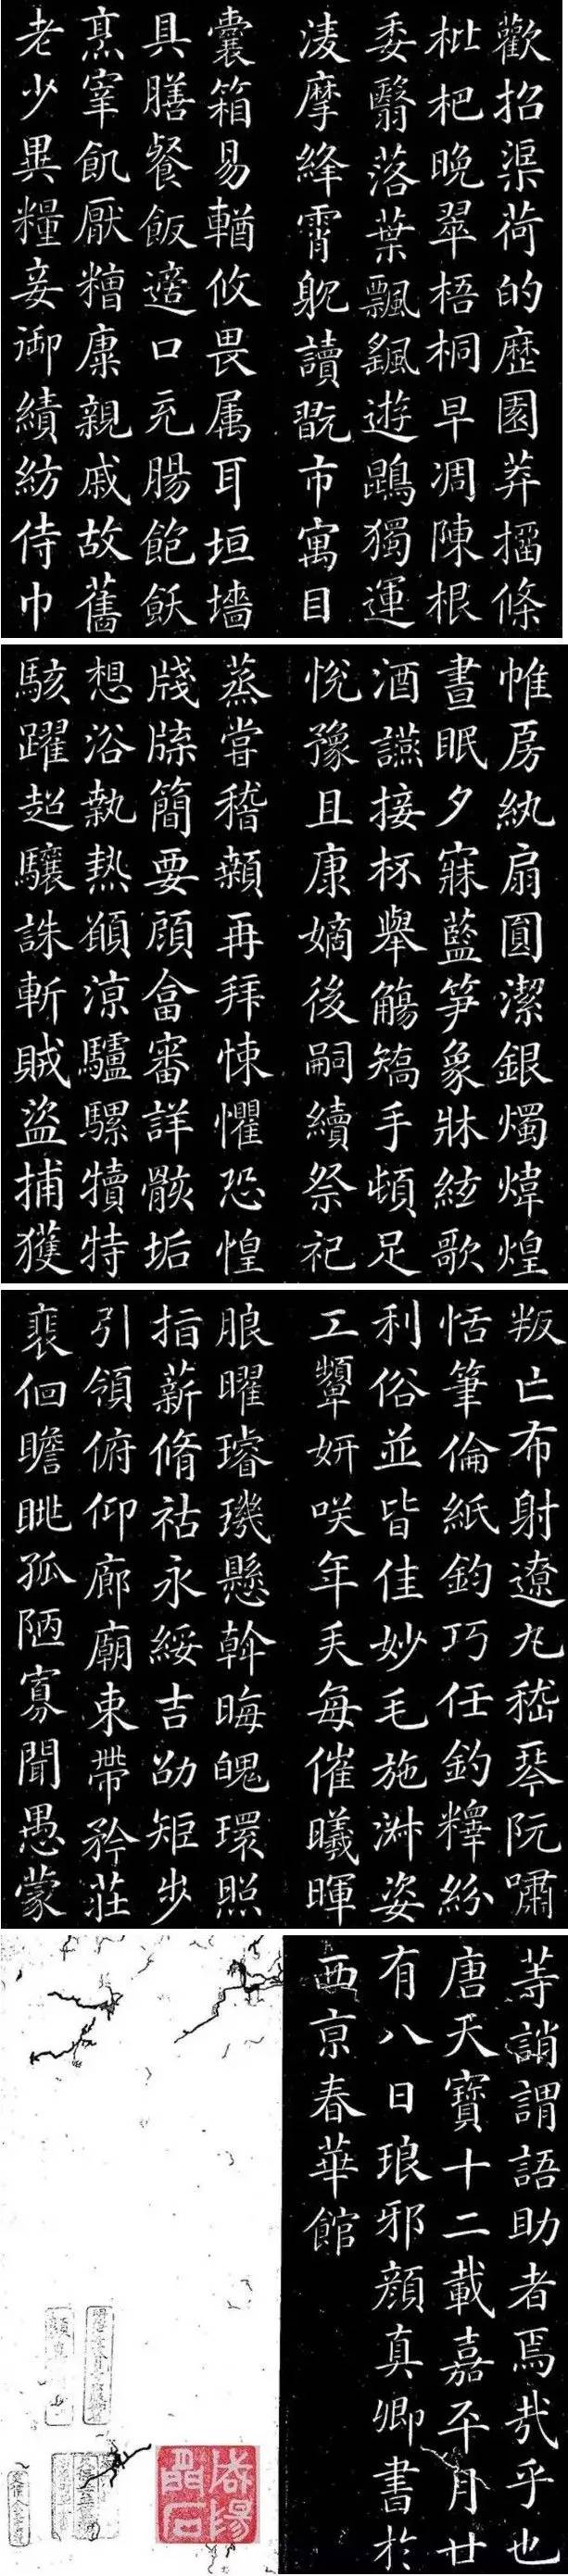 歡招渠荷的歷園莽搐條
枇杷晚翠梧桐早凋陳根
委翳落葉飄颻遊鵾獨運
淩摩絳霄躭讀翫市寓目
囊箱易輶攸畏属耳垣墻
具膳餐飯適口充腸飽飫
烹宰飢厭糟糠親戚故舊
老少異糧妾御績紡侍巾
帷房紈扇圓潔銀燭煒煌
晝眠夕寐藍笋象牀絃歌
酒讌接杯舉觴矯手頓足
悅豫且康嫡後嗣續祭祀
蒸嘗稽顙再拜悚懼恐惶
牋牒簡要顧畣審詳骸垢
想浴執热顖涼驢騾犢特
駭躍超驤誅斬賊盜捕獲
叛亡布射遼丸嵇琴阮嘯
恬筆倫紙鈞巧任釣釋紛
利俗並皆佳妙毛施淑姿
工顰妍咲年矢每催曦暉
朖曜璿璣懸斡晦魄環照
指薪脩祜永綏吉劭矩步
引領俯仰廊廟束帶矜莊
裴佪瞻眺孤陋寡聞愚蒙
等誚謂語助者焉哉乎也
唐天寶十二載嘉平月廿
有八日琅邪顏真卿書於
西京春華館